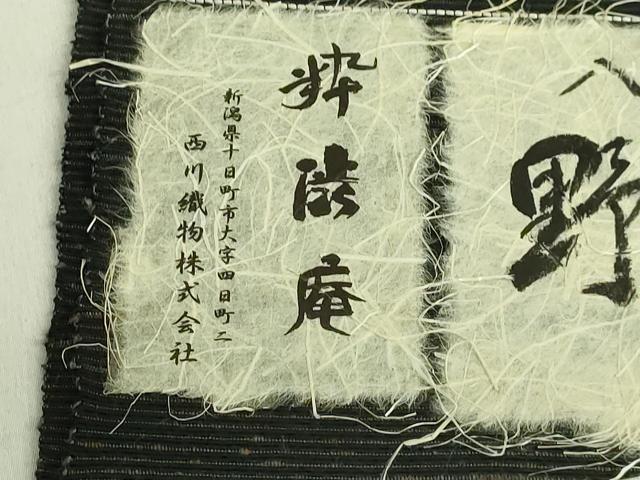 八
野
粋渋庵
新潟県十日町市大字四日町二
西川織物株式会社